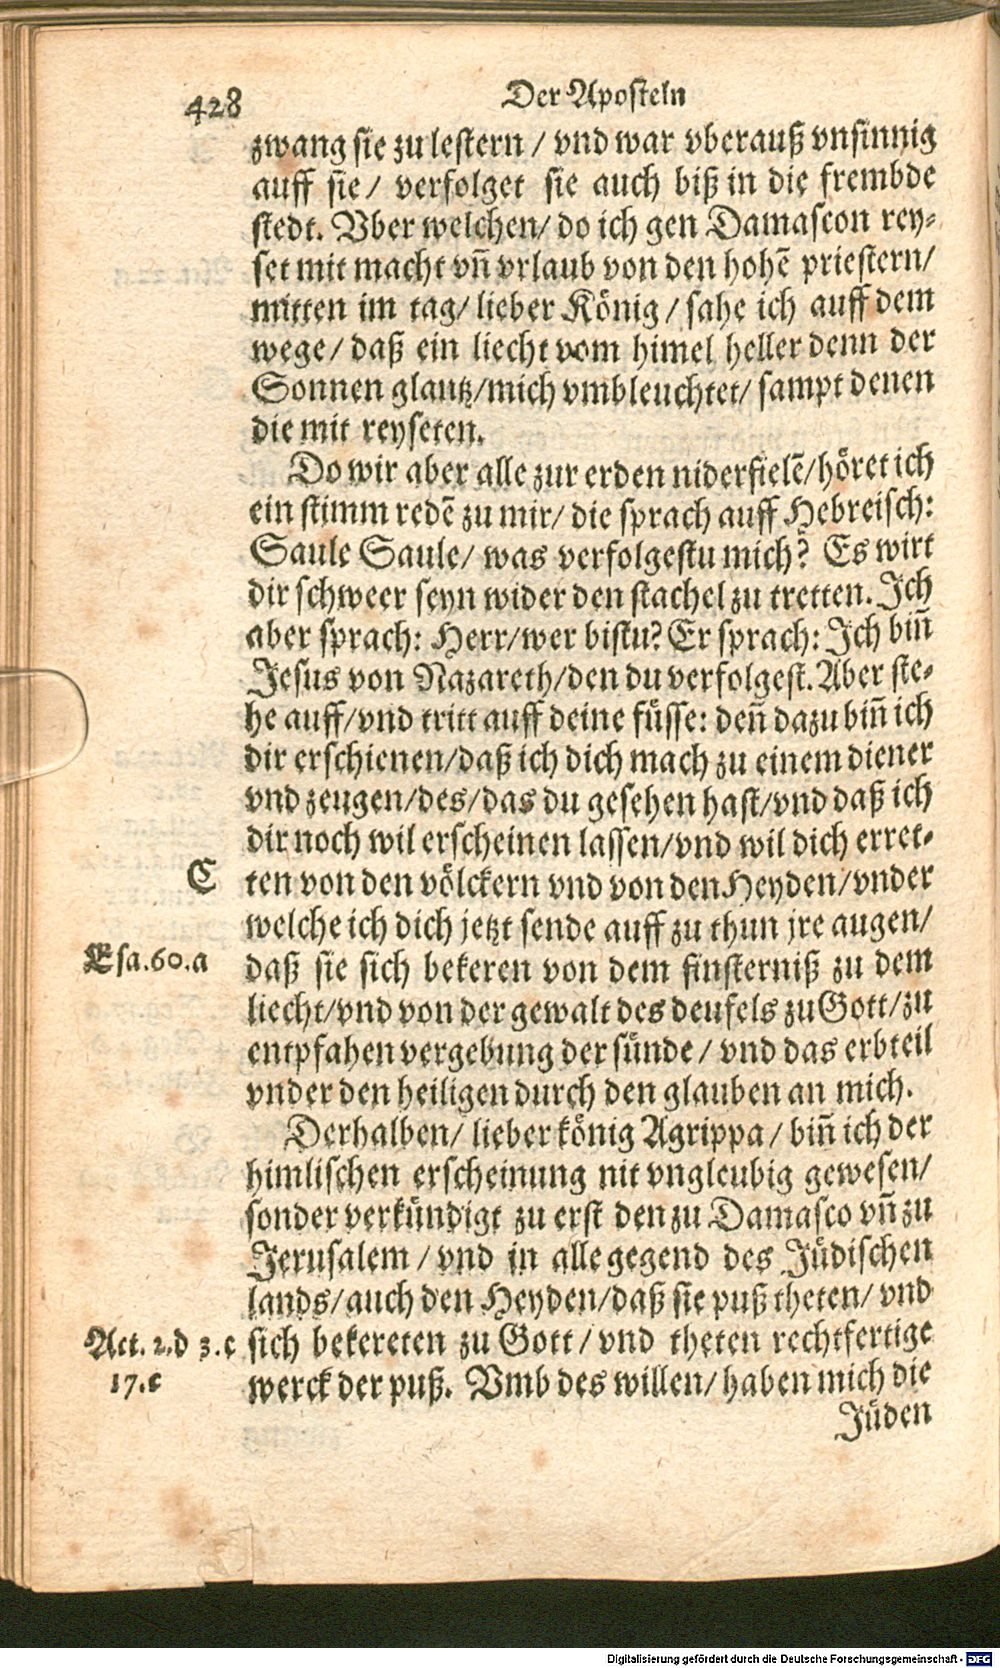 428
Der Aposteln
zwang sie zu lestern / vnd war vberauß vnsinnig
auff sie / verfolget sie auch biß in die frembde
stedt. Vber welchen/ do ich gen Damascon rey-
set mit macht vñ vrlaub von den hohẽ priestern/
mitten im tag/ lieber König / sahe ich auff dem
wege / daß ein liecht vom himel heller denn der
Sonnen glantz/mich vmbleuchtet/ sampt denen
die mit reyseten.
Do wir aber alle zur erden niderfielẽ/höret ich
ein stimm redẽ zu mir/ die sprach auff Hebreisch:
Saule Saule/ was verfolgestu mich? Es wirt
dir schweer seyn wider den stachel zu tretten. Ich
aber sprach: Herr/wer bistu? Er sprach: Ich biñ
Jesus von Nazareth/den du verfolgest. Aber ste-
he auff/vnd tritt auff deine füsse: deñ dazu biñ ich
dir erschienen/daß ich dich mach zu einem diener
vnd zeugen/des/das du gesehen hast/vnd daß ich
dir noch wil erscheinen lassen/vnd wil dich erret-
C
ten von den völckern vnd von den Heyden/vnder
welche ich dich jetzt sende auff zu thun jre augen/
Esa.60.a
daß sie sich bekeren von dem finsterniß zu dem
liecht/vnd von der gewalt des deufels zu Gott/zu
entpfahen vergebung der sünde / vnd das erbteil
vnder den heiligen durch den glauben an mich.
Derhalben/ lieber könig Agrippa / biñ ich der
himlischen erscheinung nit vngleubig gewesen/
sonder verkündigt zu erst den zu Damasco vñ zu
Jerusalem / vnd in alle gegend des Jüdischen
lands/auch den Heyden/daß sie puß theten/ vnd
Act. 2.d 3.c
sich bekereten zu Gott / vnd theten rechtfertige
17.c
werck der puß. Vmb des willen/ haben mich die
Jüden
Digitalisierung gefördert durch die Deutsche Forschungsgemeinschaft - DFG